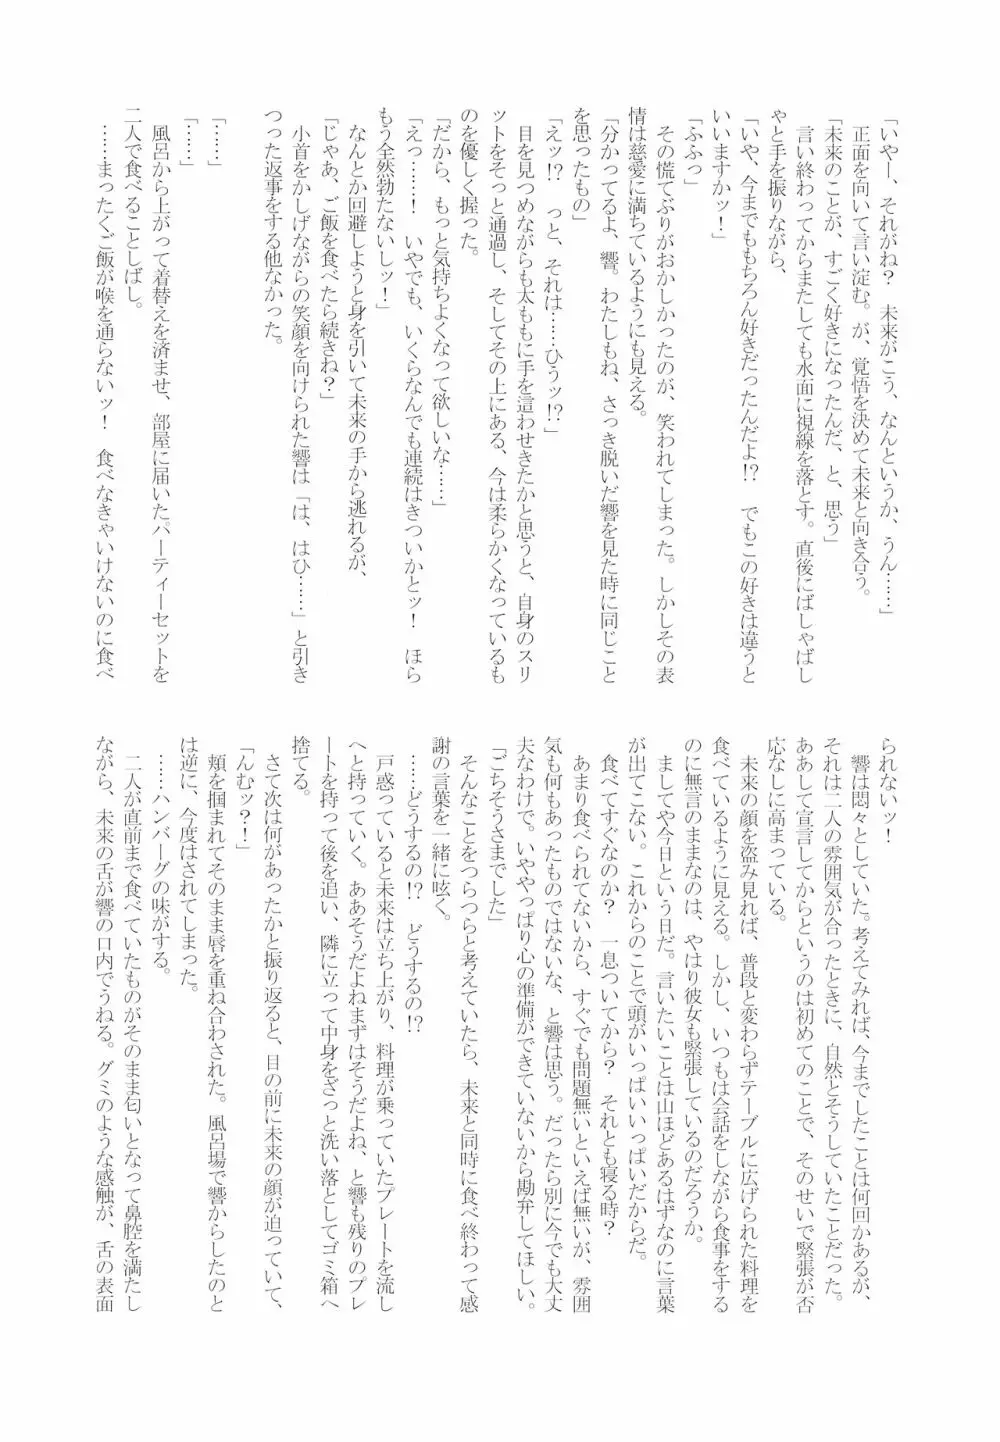 「いやー、それがね？　未来がこう、なんというか、うん……」
　正面を向いて言い淀む。が、覚悟を決めて未来と向き合う。
「未来のことが、すごく好きになったんだ、と、思う」
　言い終わってからまたしても水面に視線を落とす。直後にばしゃばし
ゃと手を振りながら、
「いや、今までももちろん好きだったんだよ!?　でもこの好きは違うと
いいますかッ！」
「ふふっ」
　その慌てぶりがおかしかったのが、笑われてしまった。しかしその表
情は慈愛に満ちているようにも見える。
「分かってるよ、響。わたしもね、さっき脱いだ響を見た時に同じこと
を思ったもの」
「えッ!?　っと、それは……ひうッ!?」
　目を見つめながらも太ももに手を這わせきたかと思うと、自身のスリ
ットをそっと通過し、そしてその上にある、今は柔らかくなっているも
のを優しく握った。
「だから、もっと気持ちよくなって欲しいな……」
「えっ……！　いやでも、いくらなんでも連続はきついかとッ！　ほら
もう全然勃たないしッ！」
　なんとか回避しようと身を引いて未来の手から逃れるが、
「じゃあ、ご飯を食べたら続きね？」
　小首をかしげながらの笑顔を向けられた響は「は、はひ……」と引き
つった返事をする他なかった。
「……」
「……」
　風呂から上がって着替えを済ませ、部屋に届いたパーティーセットを
二人で食べることしばし。
　……まったくご飯が喉を通らないッ！　食べなきゃいけないのに食べ
られないッ！
　響は悶々としていた。考えてみれば、今までしたことは何回かあるが、
それは二人の雰囲気が合ったときに、自然とそうしていたことだった。
ああして宣言してからというのは初めてのことで、そのせいで緊張が否
応なしに高まっている。
　未来の顔を盗み見れば、普段と変わらずテーブルに広げられた料理を
食べているように見える。しかし、いつもは会話をしながら食事をする
のに無言のままなのは、やはり彼女も緊張しているのだろうか。
　ましてや今日という日だ。言いたいことは山ほどあるはずなのに言葉
が出てこない。これからのことで頭がいっぱいいっぱいだからだ。
　食べてすぐなのか？　一息ついてから？　それとも寝る時？
　あまり食べられてないから、すぐでも問題無いといえば無いが、雰囲
気も何もあったものではないな、と響は思う。だったら別に今でも大丈
夫なわけで。いややっぱり心の準備ができていないから勘弁してほしい。
「ごちそうさまでした」
　そんなことをつらつらと考えていたら、未来と同時に食べ終わって感
謝の言葉を一緒に呟く。
　……どうするの!?　どうするの!?
　戸惑っていると未来は立ち上がり、料理が乗っていたプレートを流し
へと持っていく。ああそうだよねまずはそうだよね、と響も残りのプレ
ートを持って後を追い、隣に立って中身をざっと洗い落としてゴミ箱へ
捨てる。
　さて次は何があったかと振り返ると、目の前に未来の顔が迫っていて、
「んむッ？！」
　頬を掴まれてそのまま唇を重ね合わされた。風呂場で響からしたのと
は逆に、今度はされてしまった。
　……ハンバーグの味がする。
　二人が直前まで食べていたものがそのまま匂いとなって鼻腔を満たし
ながら、未来の舌が響の口内でうねる。グミのような感触が、舌の表面